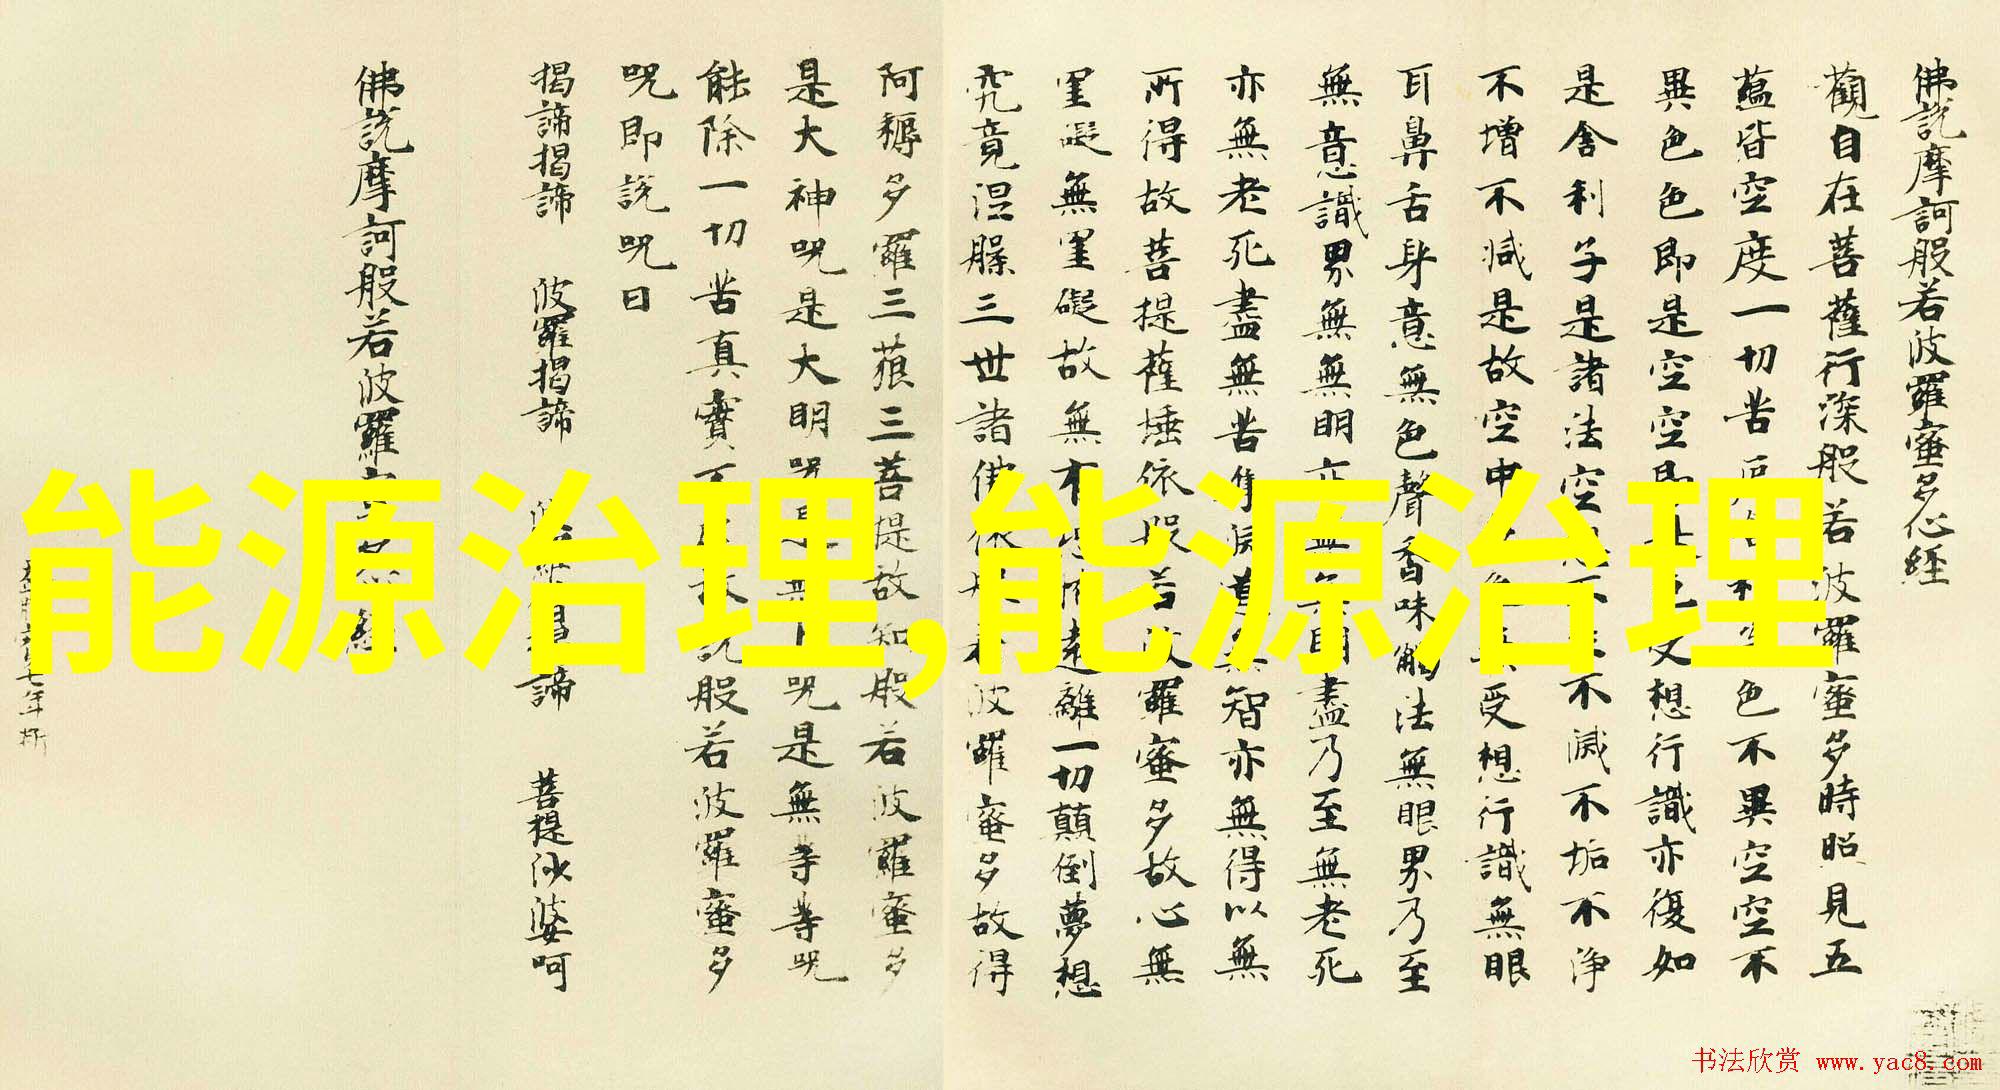 佛說摩訶般若波羅蜜多心經
觀自在菩薩行深般若波羅蜜多時照見五
蘊皆空度一切苦厄舍利子色不異空空不
異色色即是空空即是色受想行識亦復如
是舍利子是諸法空相不生不滅不垢不淨
不增不減是故空中無色無受想行識無眼
耳鼻舌身意無色聲香味觸法無眼界乃至
無意識界無無明亦無無明盡乃至無老死
亦無老死盡無苦集滅道無智亦無得以無
所得故菩提薩埵依般若波羅蜜多故心無
罣礙無罣礙故無有恐怖遠離一切顛倒夢想
究竟涅槃三世諸佛依般若波羅蜜多故得
阿耨多羅三藐三菩提故知般若波羅蜜多
是大神呪是大明呪是無上呪是無等等呪
能除一切苦真實不虛故說般若波羅蜜多
呪即說呪曰
揭諦揭諦 波羅揭諦 波羅僧揭諦 菩提娑婆呵
佛說摩訶般若波羅蜜多心經
能源治理,能源治理
书法欣赏 www.yac8.com